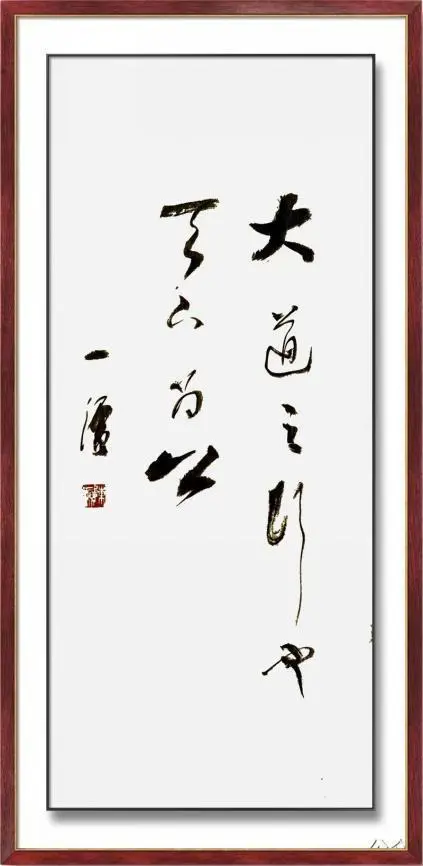 大道之行也
天下为公
一潭